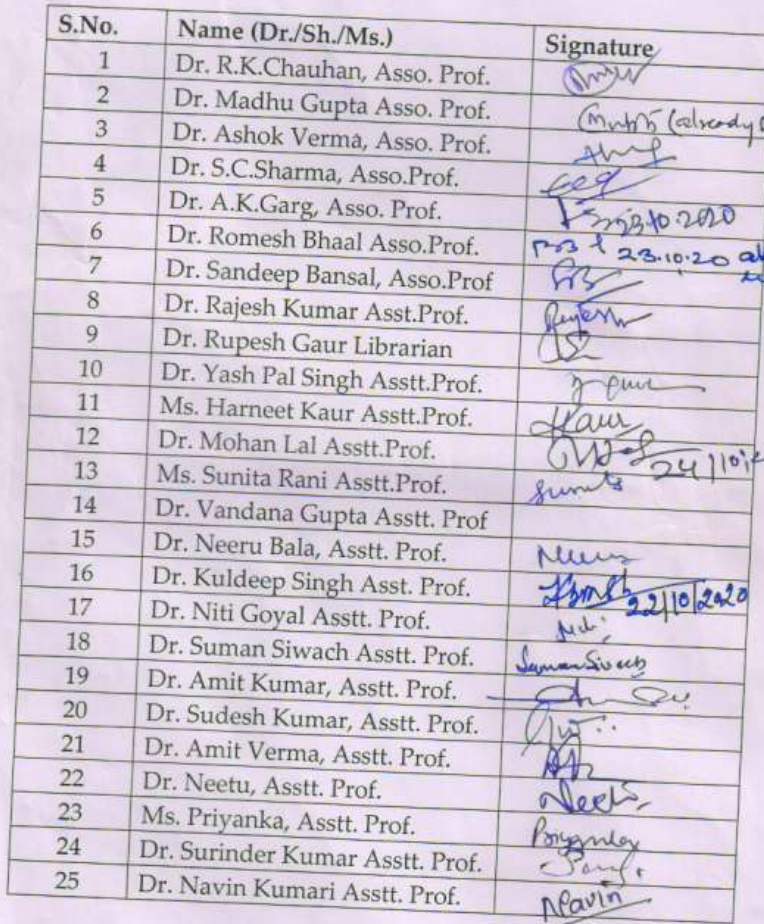 S.No. Name (Dr./Sh./Ms.) Signature
1 Dr. R.K.Chauhan, Asso. Prof.
2 Dr. Madhu Gupta Asso. Prof. (already
3 Dr. Ashok Verma, Asso. Prof.
4 Dr. S.C.Sharma, Asso.Prof.
5 Dr. A.K.Garg, Asso. Prof. 23.10.2020
6 Dr. Romesh Bhaal Asso.Prof. 23.10.20
7 Dr. Sandeep Bansal, Asso.Prof
8 Dr. Rajesh Kumar Asst.Prof. Rajesh
9 Dr. Rupesh Gaur Librarian
10 Dr. Yash Pal Singh Asstt.Prof.
11 Ms. Harneet Kaur Asstt.Prof. Kaur
12 Dr. Mohan Lal Asstt.Prof. 24/10/
13 Ms. Sunita Rani Asstt.Prof. Sunita
14 Dr. Vandana Gupta Asstt. Prof
15 Dr. Neeru Bala, Asstt. Prof. Neeru
16 Dr. Kuldeep Singh Asst. Prof. 22/10/2020
17 Dr. Niti Goyal Asstt. Prof. Niti
18 Dr. Suman Siwach Asstt. Prof. Suman Siwach
19 Dr. Amit Kumar, Asstt. Prof.
20 Dr. Sudesh Kumar, Asstt. Prof.
21 Dr. Amit Verma, Asstt. Prof.
22 Dr. Neetu, Asstt. Prof. Neetu
23 Ms. Priyanka, Asstt. Prof. Priyanka
24 Dr. Surinder Kumar Asstt. Prof.
25 Dr. Navin Kumari Asstt. Prof. Navin